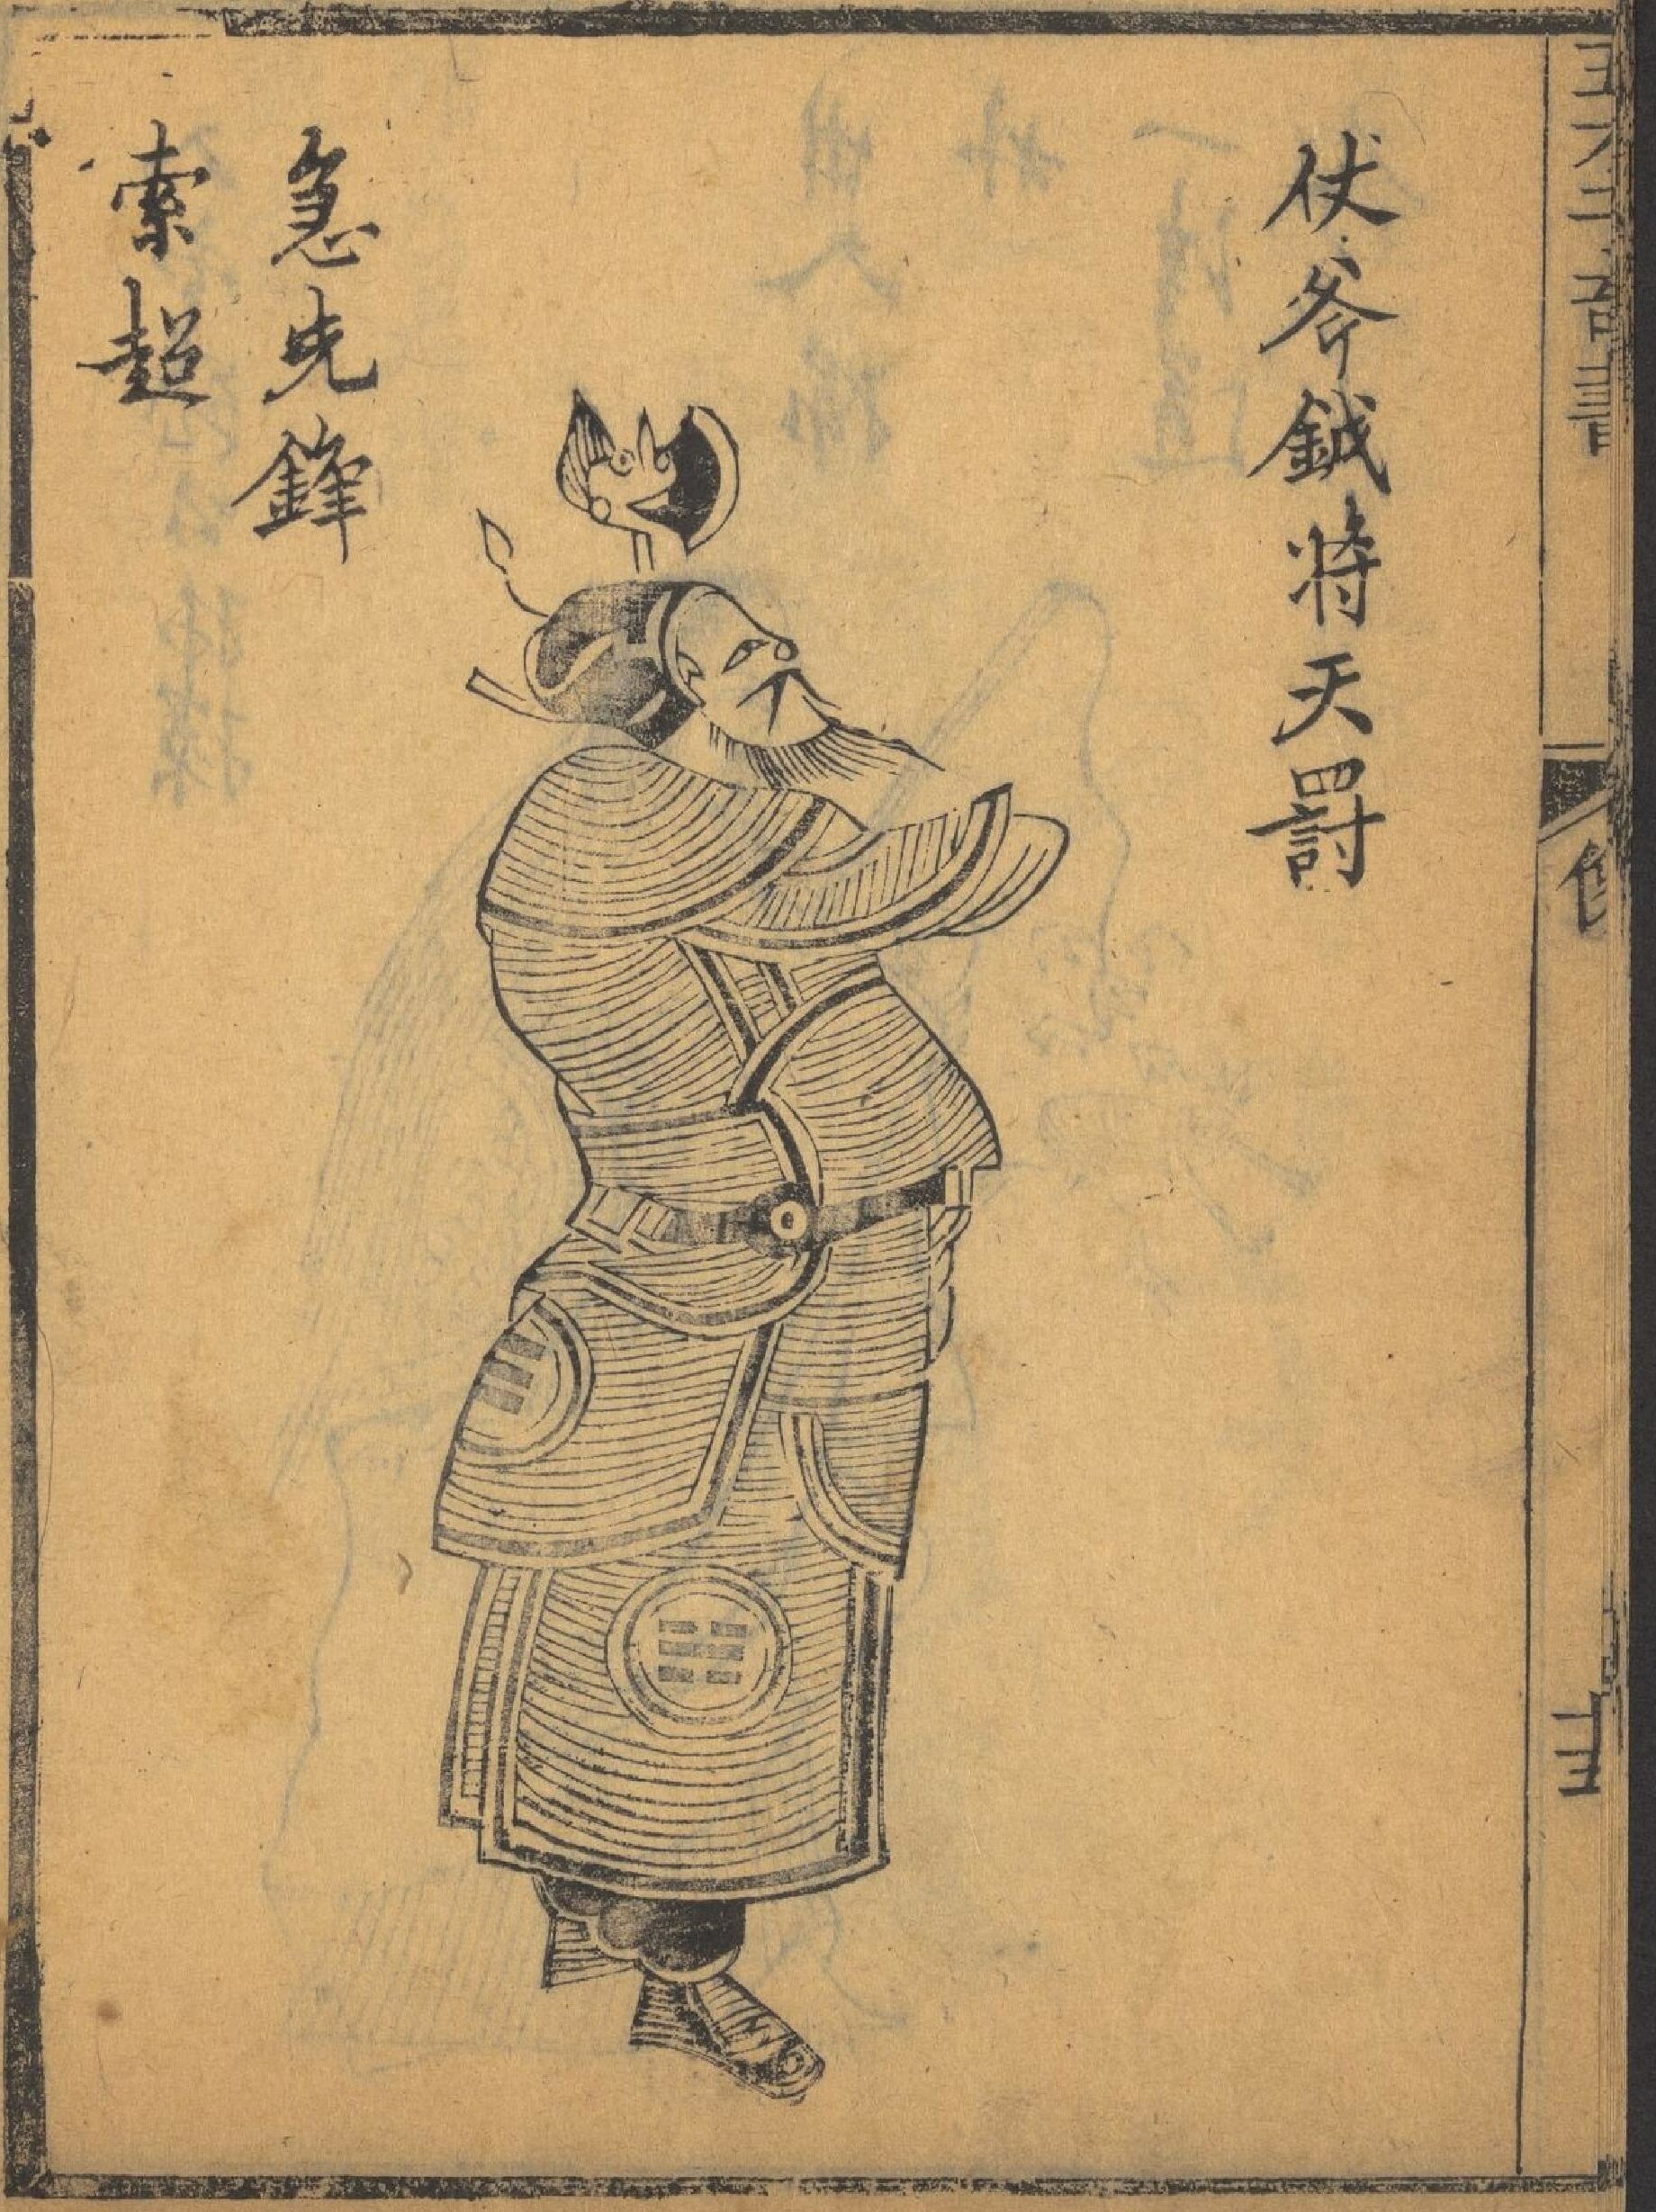 仗斧鉞將天罰
急先鋒
索超